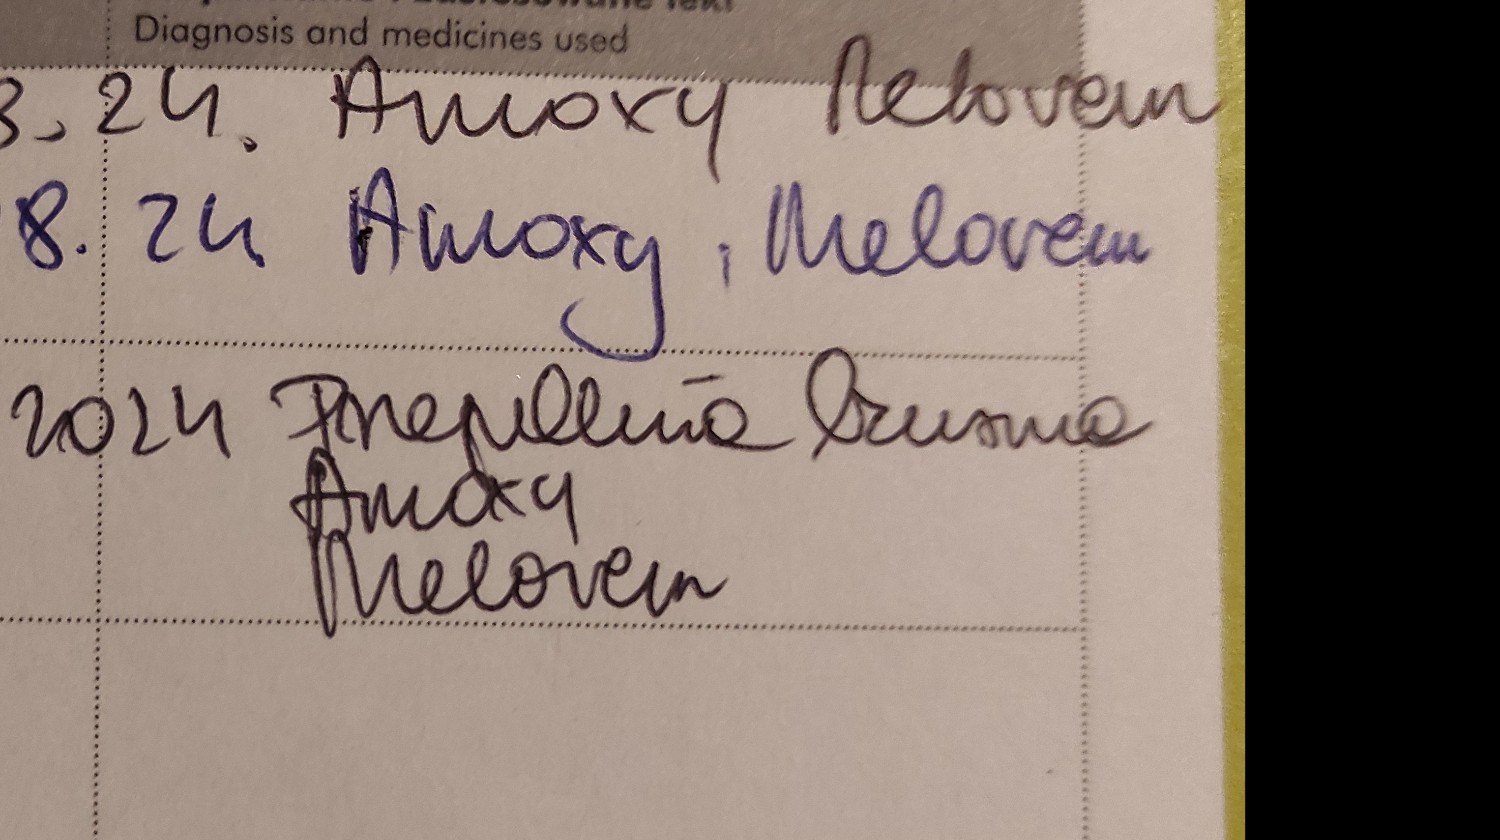 Diagnosis and medicines used
3. 24. Amoxy Melovem
8. 24 Amoxy i Melovem
2024 Przepuklina brzuszna
Amoxy
Melovem